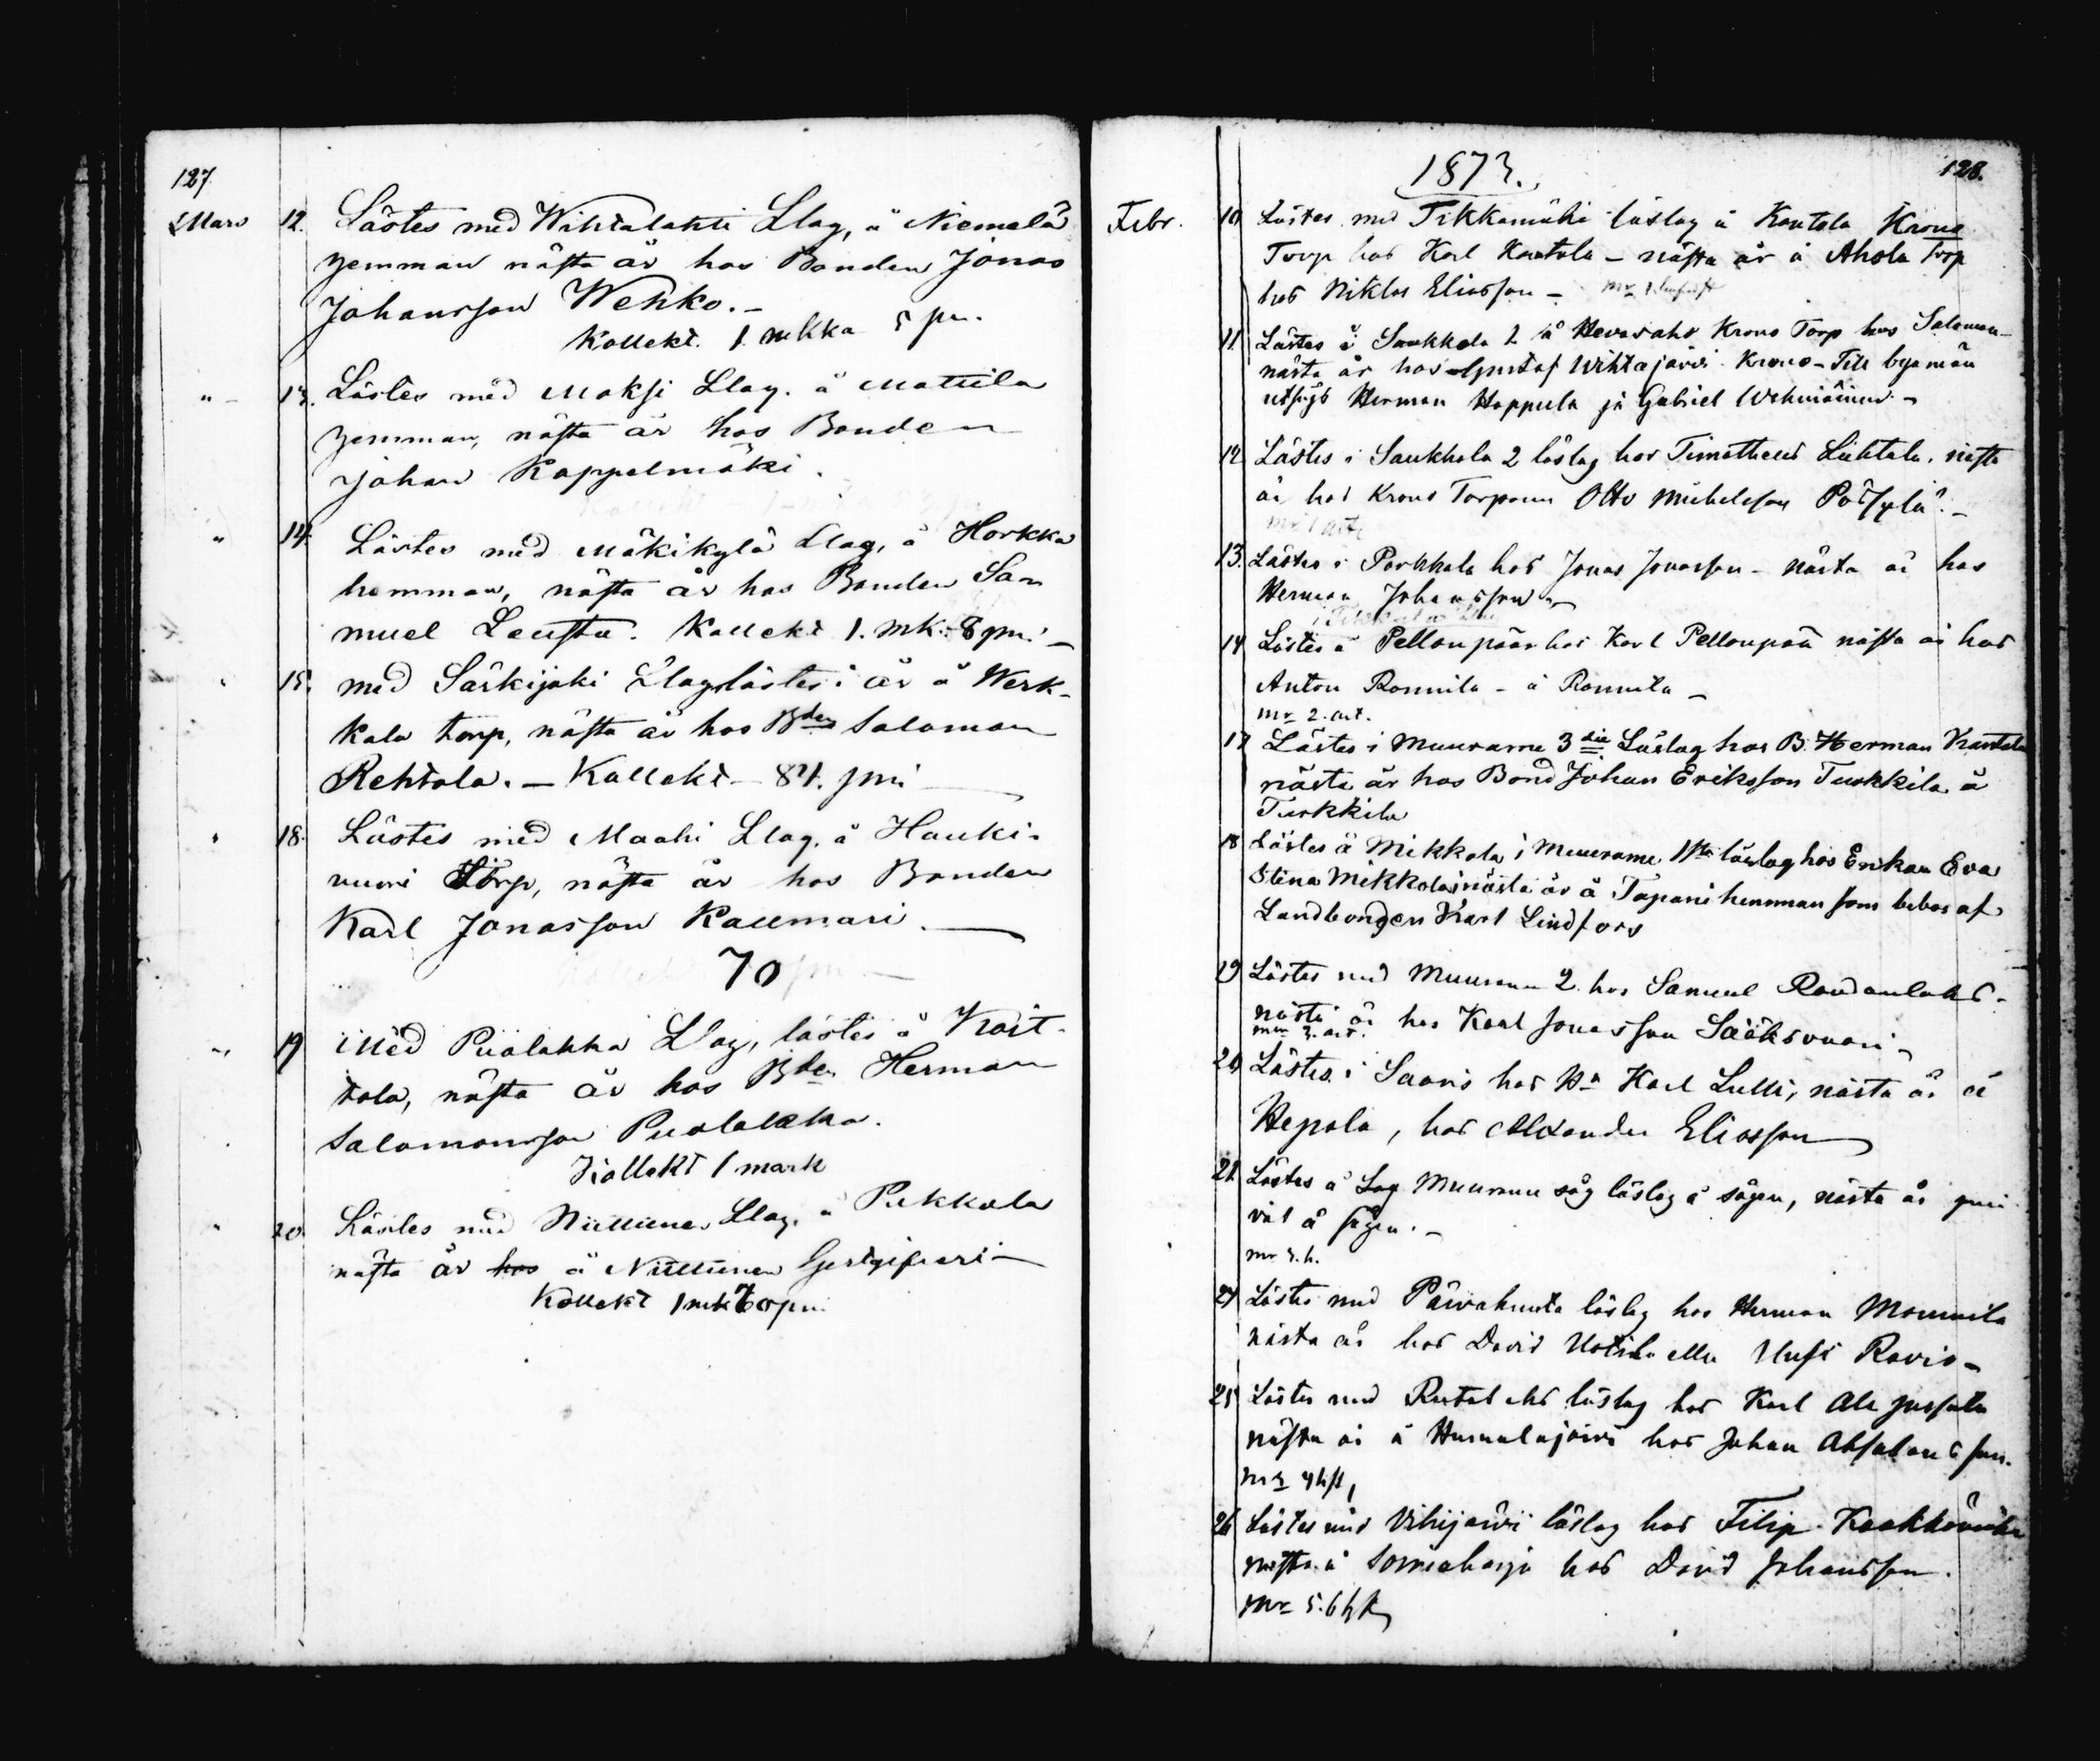 127
Mars 12. Lästes med Wihtalahti Llag, å Niemelä
hemman nästa år hos Bonden Jonas
Johansson Wehko.-
Kollekt. 1 mkka 5 pn.
" - 13. Lästes med Maksi Llag. å Mattila
hemman, nästa år hos Bonden
Johan Kappelmäki.
" 14. Lästes med Mäkikylä Llag, å Horkka
hemman, nästa år hos Bonden Sa-
muel Leusta. Kollekt 1. mk. 8 pni -
" 15. med Särkijoki Llag lästes i år å Werk-
kala torp, nästa år hos Bden Saloman
Rehtola. - Kollekt - 84. pni
" 18. Lästes med Maahi Llag. å Hauki-
vuori Torp, nästa år hos Bonden
Karl Jonasson Kaumari.
70
" 19 Med Puolakka Llag, lästes å Koit-
tola, nästa år hos Bden Herman
Salomonsson Puolakka.
Kollekt 1 mark
" 20. Lästes med Niittunen Llag. å Pukkala
nästa år hos å Niittunen Gestgifveri -
Kollekt 1 mk 70 pni
1873.
128.
Febr. 10 Lästes med Tikkamäki läslag å Kantola Krono
Torp hos Karl Kantola - nästa år å Ahola torp
hos Niklas Eliasson -
11. Lästes i Saukkola 2 å Hevosaho Krono Torp hos Saloman -
nästa år hos Gustaf Wihtajärvi Krono - Till byamän
utsågs Herman Hoppula ja Gabriel Wehniäinen -
12 Lästes i Saukkola 2 läslag hos Timotheus Lühtala, nästa
år hos Krono Torparen Otto Michelsson Pöysylä. -
mr 1 art
13. Lästes i Porkkala hos Jonas Jonasson - nästa år hos
Herman Johansson -
14 Lästes å Pellonpää hos Karl Pellonpää nästa år hos
Anton Ronnila - å Ronnila -
mr 2. art.
17 Lästes i Muurame 3die Läslag hos B. Herman Kantola
nästa år hos Bond Johan Eriksson Turkkila å
Turkkila
18 Lästes å Mikkola i Muurame 1sta läslag hos Enkan Eva
Stina Mikkola, nästa år å Tapani hemman som bebos af
Landbonden Karl Lindfors
19 Lästes med Muurame 2. hos Samuel Raudanlaht -
nästa år hos Karl Jonasson Sääksvuori -
mr 3. art.
20 Lästes i Saaris hos Bn Karl Lulli, nästa år å
Hepola, hos Alexander Eliasson
21 Lästes å Sag Muurame såg läslag å sågen, nästa år
å sågen. -
mr 3. h.
24 Lästes med Päivakunta läslag hos Herman Mommila
nästa år hos David Uotila eller Uusi Ravio -
25 Lästes med Rutalaht läslag hos Karl Ala Jussila
nästa år å Humalajärvi hos Johan Absalonsson.
mr 4 hft,
26 Lästes med Vihijärvi läslag hos Filip Kaakkomäki
nästa å Somiaharju hos David Johansson.
mr 5. 6 hft